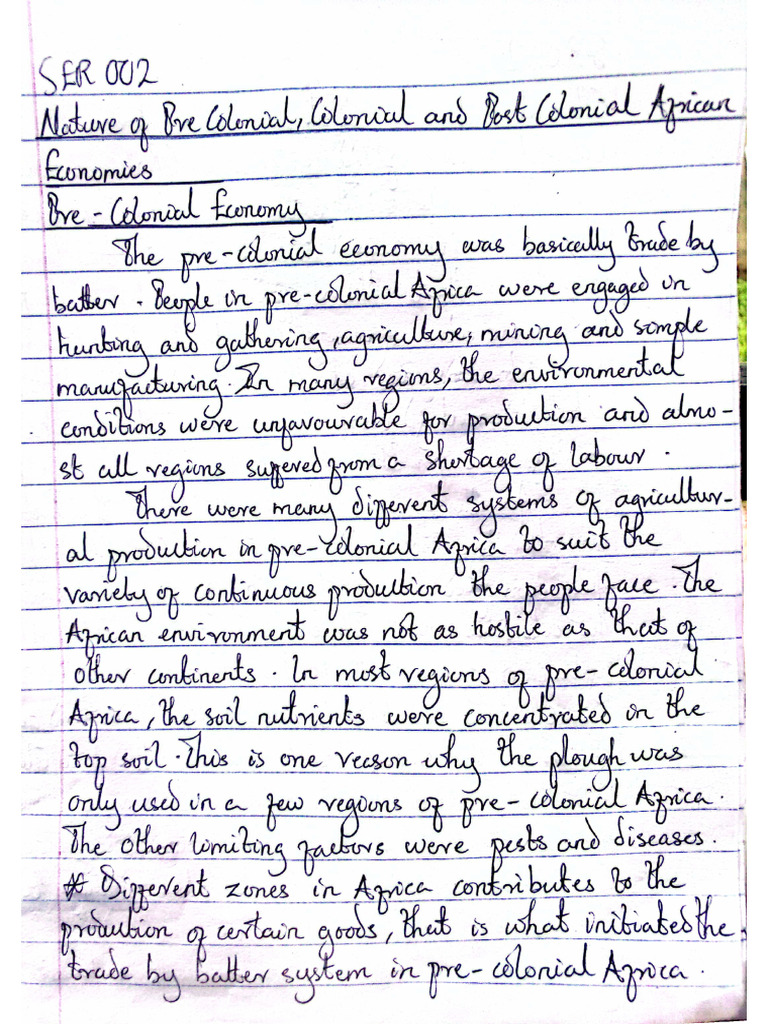 SER 002
Nature of Pre Colonial, Colonial and Post Colonial African
Economies
Pre - Colonial Economy
The pre-colonial economy was basically trade by
batter. People in pre-colonial Africa were engaged in
hunting and gathering, agriculture, mining and simple
manufacturing. In many regions, the environmental
conditions were unfavourable for production and almo-
st all regions suffered from a shortage of labour.
There were many different systems of agricultur-
al production in pre-colonial Africa to suit the
variety of continuous production the people face. The
African environment was not as hostile as that of
other continents. In most regions of pre-colonial
Africa, the soil nutrients were concentrated in the
top soil. This is one reason why the plough was
only used in a few regions of pre-colonial Africa.
The other limiting factors were pests and diseases.
* Different zones in Africa contributes to the
production of certain goods, that is what initiated the
trade by batter system in pre-colonial Africa.